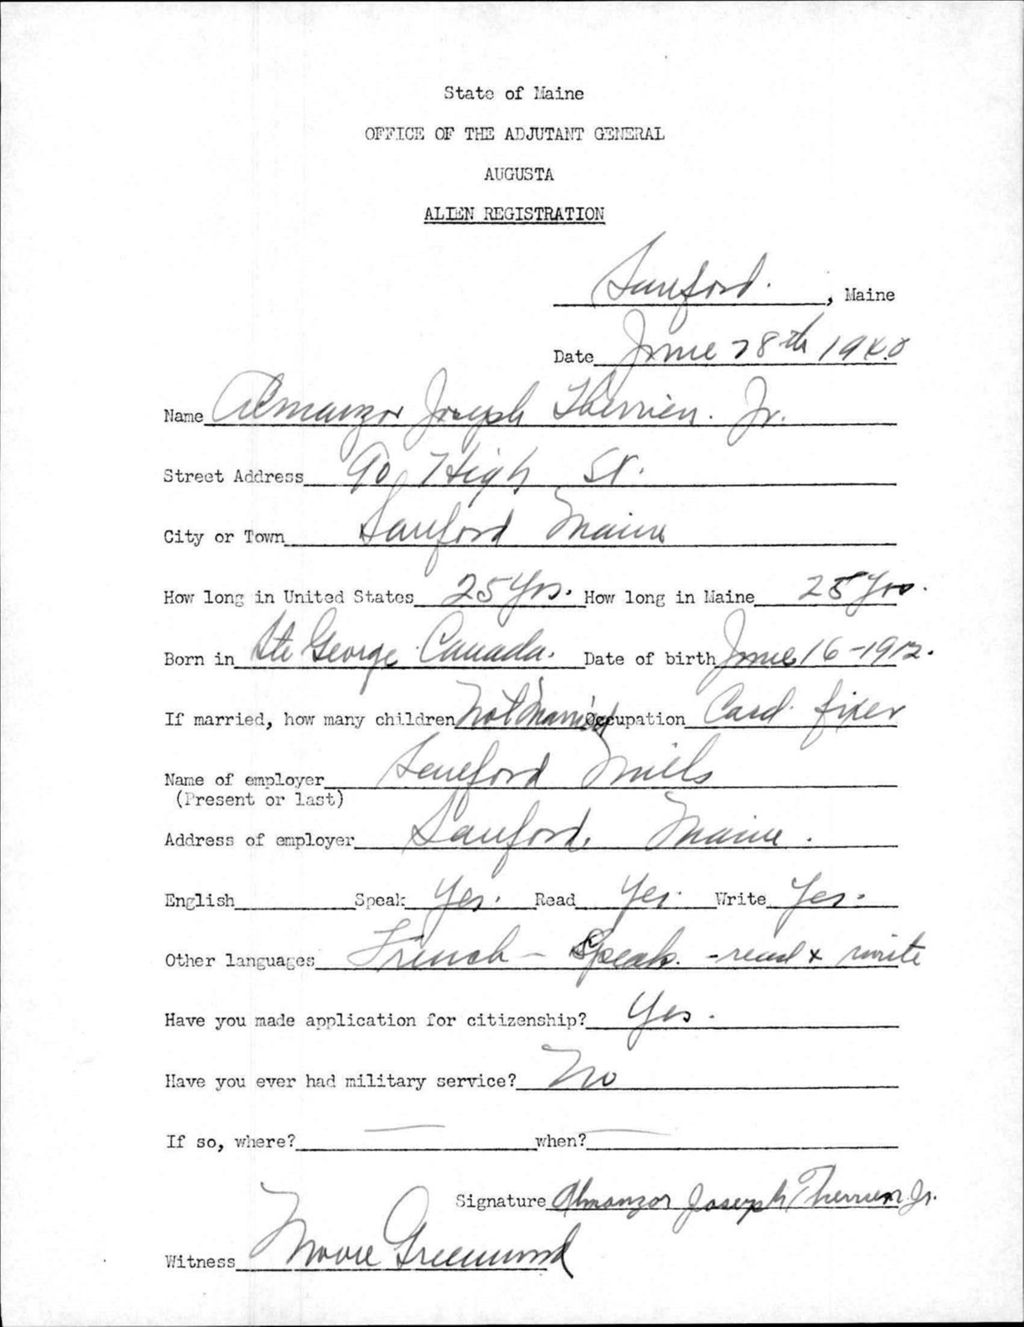 State of Maine
OFFICE OF THE ADJUTANT GENERAL
AUGUSTA
ALIEN REGISTRATION
Sanford. , Maine
Date June 28th 1940
Name Almanzor Joseph Therrien. Jr.
Street Address 90 High St.
City or Town Sanford Maine
How long in United States 25 Yrs. How long in Maine 25 Yrs.
Born in Ste George Canada. Date of birth June 16-1912.
If married, how many children Not Married Occupation Card fixer
Name of employer Sanford Mills
(Present or last)
Address of employer Sanford, Maine.
English Speak Yes. Read Yes. Write Yes.
Other languages French - Speak. - read & write
Have you made application for citizenship? Yes.
Have you ever had military service? No
If so, where? — when? —
Signature Almanzor Joseph Therrien Jr.
Witness